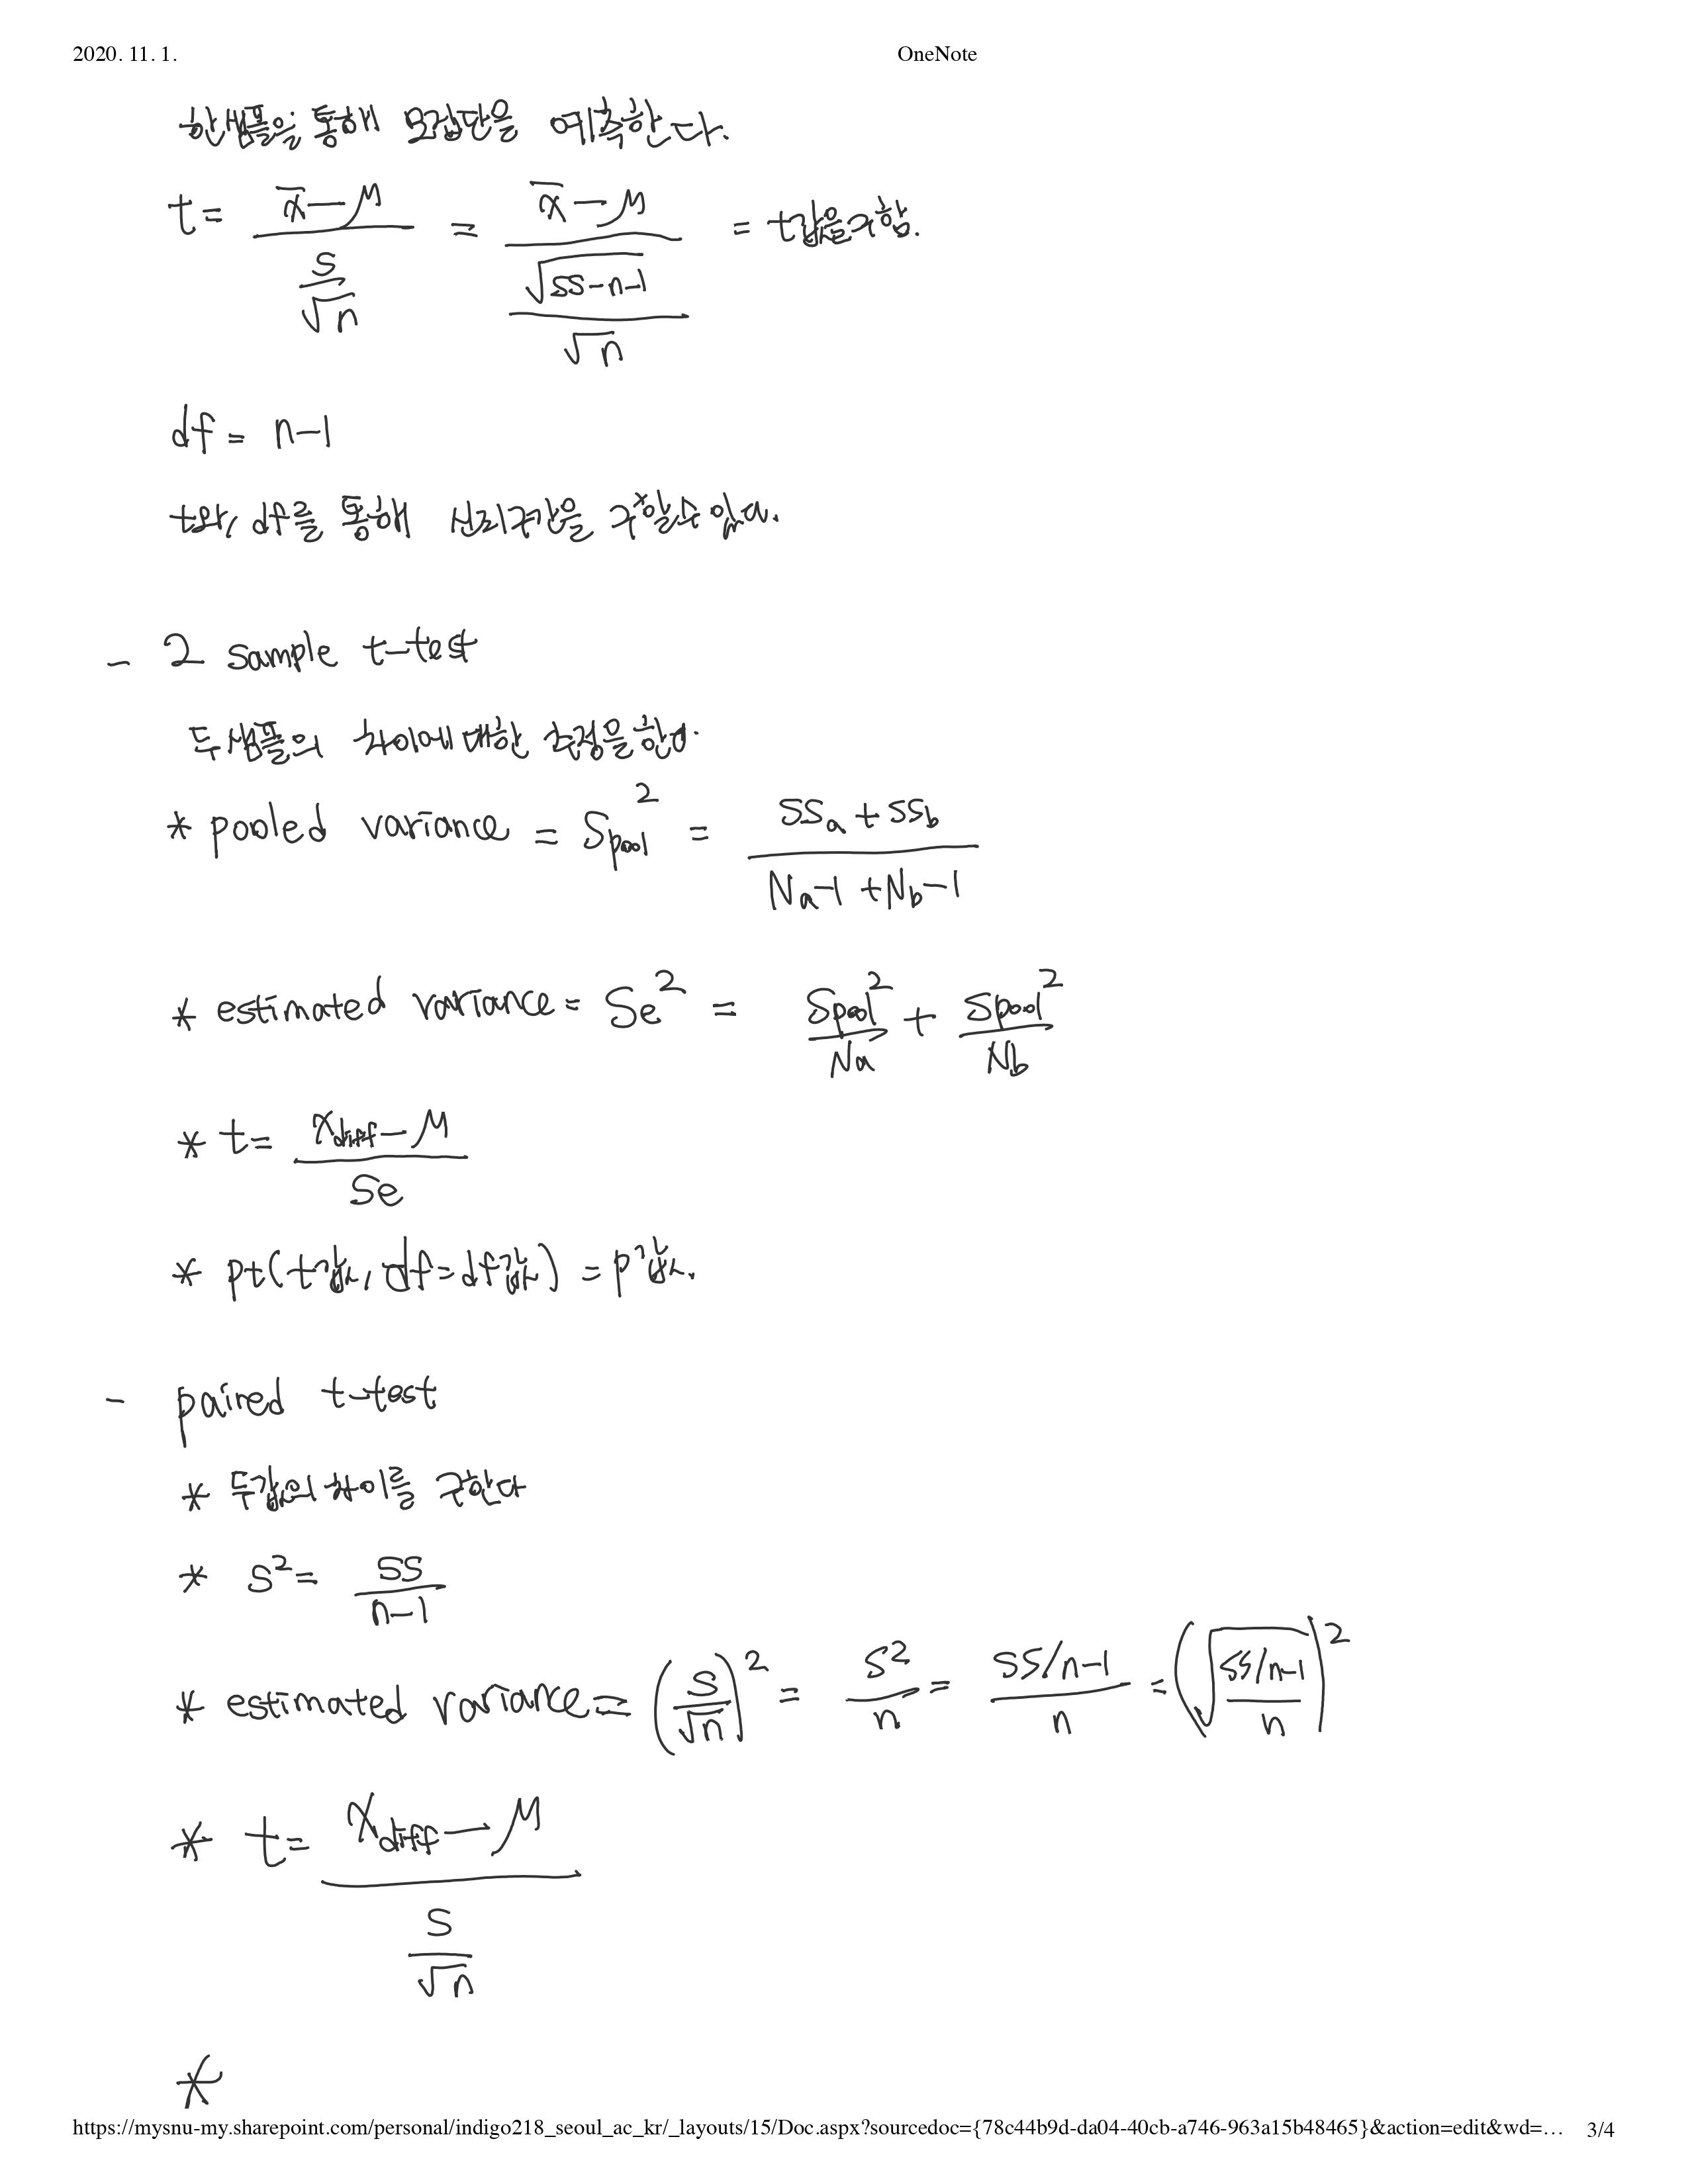 2020. 11. 1.
OneNote
한샘플을 통해 모집단을 예측한다.
t = (x̄ − μ) / (s/√n) = (x̄ − μ) / (√(ss−n−1) / √n) = t값을구함.
df = n−1
t와, df를 통해 신뢰구간을 구할수있다.
– 2 sample t-test
두샘플의 차이에대한 추정을한다.
* pooled variance = Spool² = (SSa + SSb) / (Na−1 + Nb−1)
* estimated variance = Se² = Spool²/Na + Spool²/Nb
* t = (xdiff − μ) / Se
* pt(t값, df=df값) = p값.
– paired t-test
* 두값의차이를 구한다
* s² = SS / (n−1)
* estimated variance = (s/√n)² = s²/n = (SS/n−1) / n = (√((SS/n−1) / n))²
* t = (xdiff − μ) / (s/√n)
*
https://mysnu-my.sharepoint.com/personal/indigo218_seoul_ac_kr/_layouts/15/Doc.aspx?sourcedoc={78c44b9d-da04-40cb-a746-963a15b48465}&action=edit&wd=… 3/4